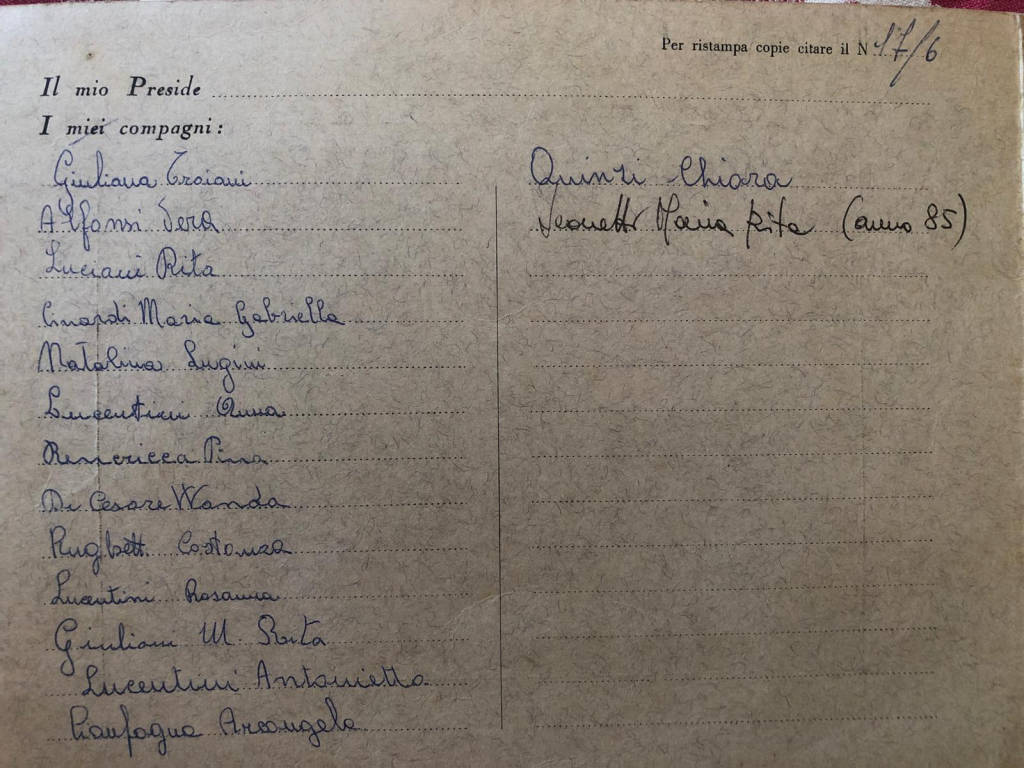 Per ristampa copie citare il N 17/6
Il mio Preside
I miei compagni:
Giuliana Troiani
Alfonsi Vera
Luciani Rita
Cinardi Maria Gabriella
Natalina Lugini
Lucentini Anna
Pina
De Cesare Wanda
Costanza
Lucentini Rosanna
Giuliani M. Rita
Lucentini Antonietta
Gianfagna Arcangela
Quinzi Chiara
Leonetti Maria Rita (anno 85)